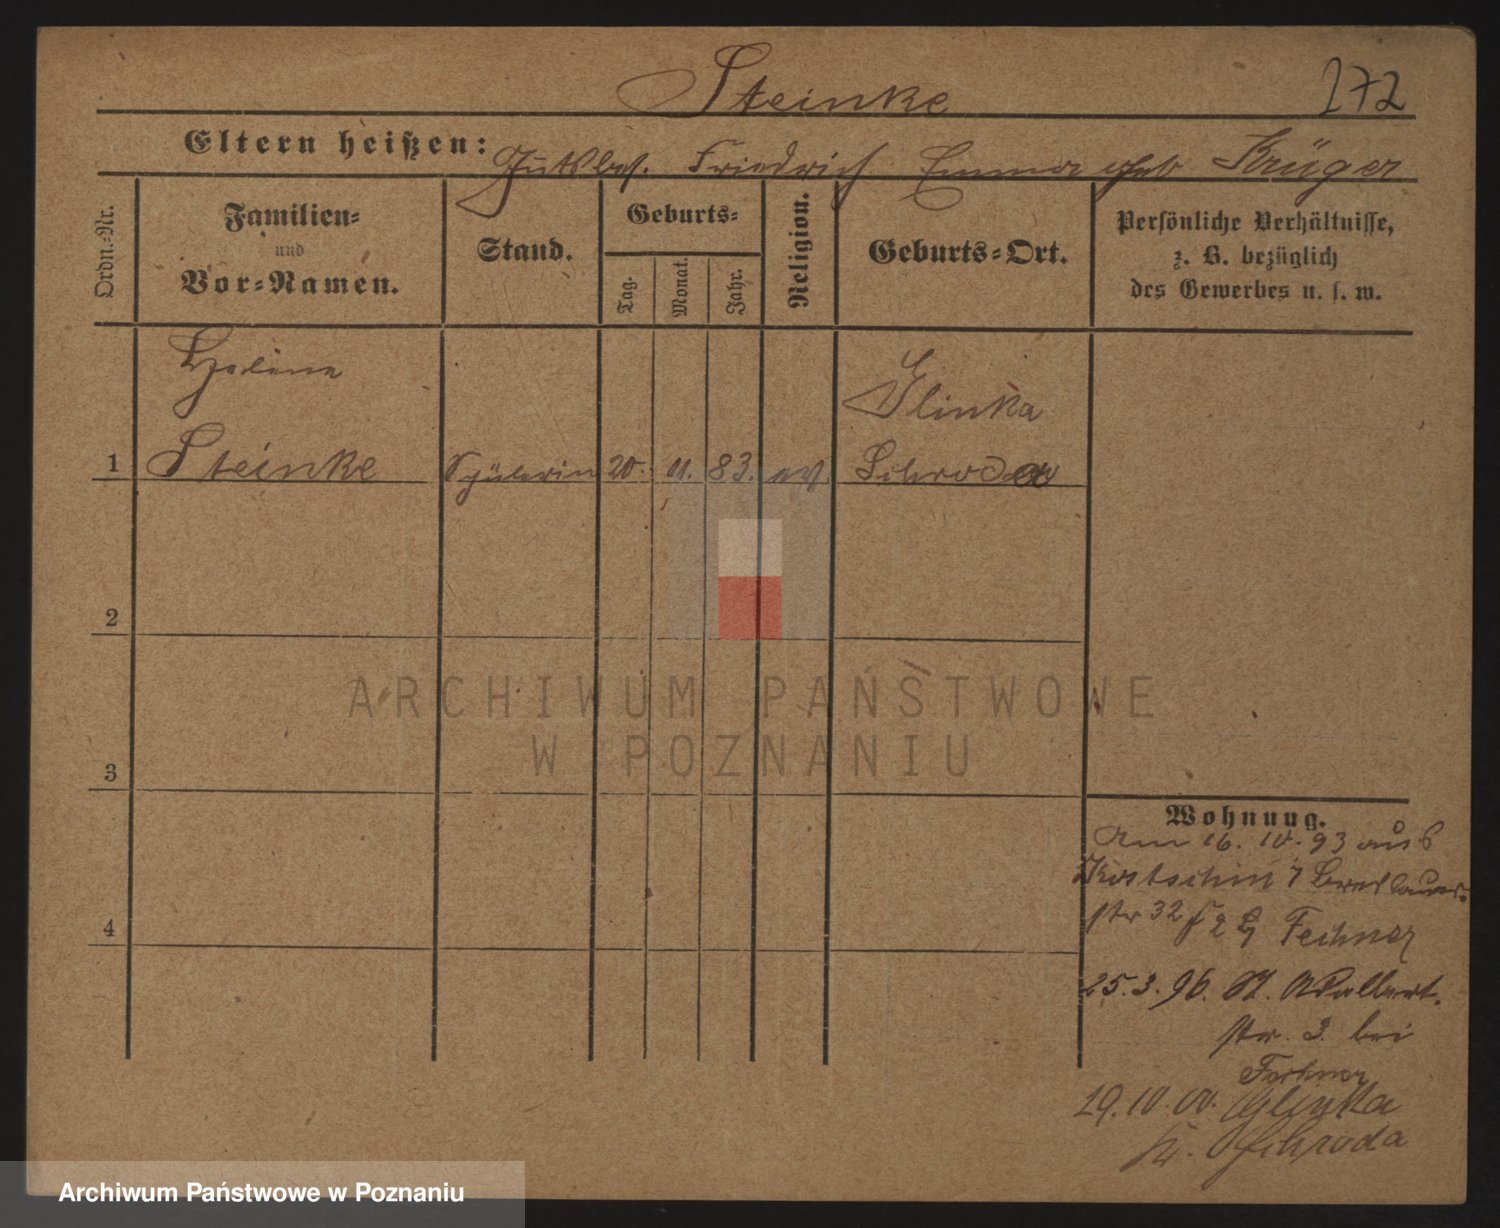 Steinke 272
Eltern heißen: Gutsbes. Friedrich Emma geb Krüger
Ordn.-Nr.
Familien-
und
Vor-Namen.
Stand.
Geburts-
Tag.
Monat.
Jahr.
Religion.
Geburts-Ort.
Persönliche Verhältnisse,
z. B. bezüglich
des Gewerbes u. s. w.
Helene
Glinka
1 Steinke Schülerin 20. 11. 83. ev Schroda
2
3
4
Wohnung.
Am 16. 10. 93 aus
Kostschin Breslauer-
str 32 Fechner
25.3.96. St. Adalbert.
str. 3. bei
Fechner
29.10.00. Glinka
Kr. Schroda
ARCHIWUM PAŃSTWOWE
W POZNANIU
Archiwum Państwowe w Poznaniu